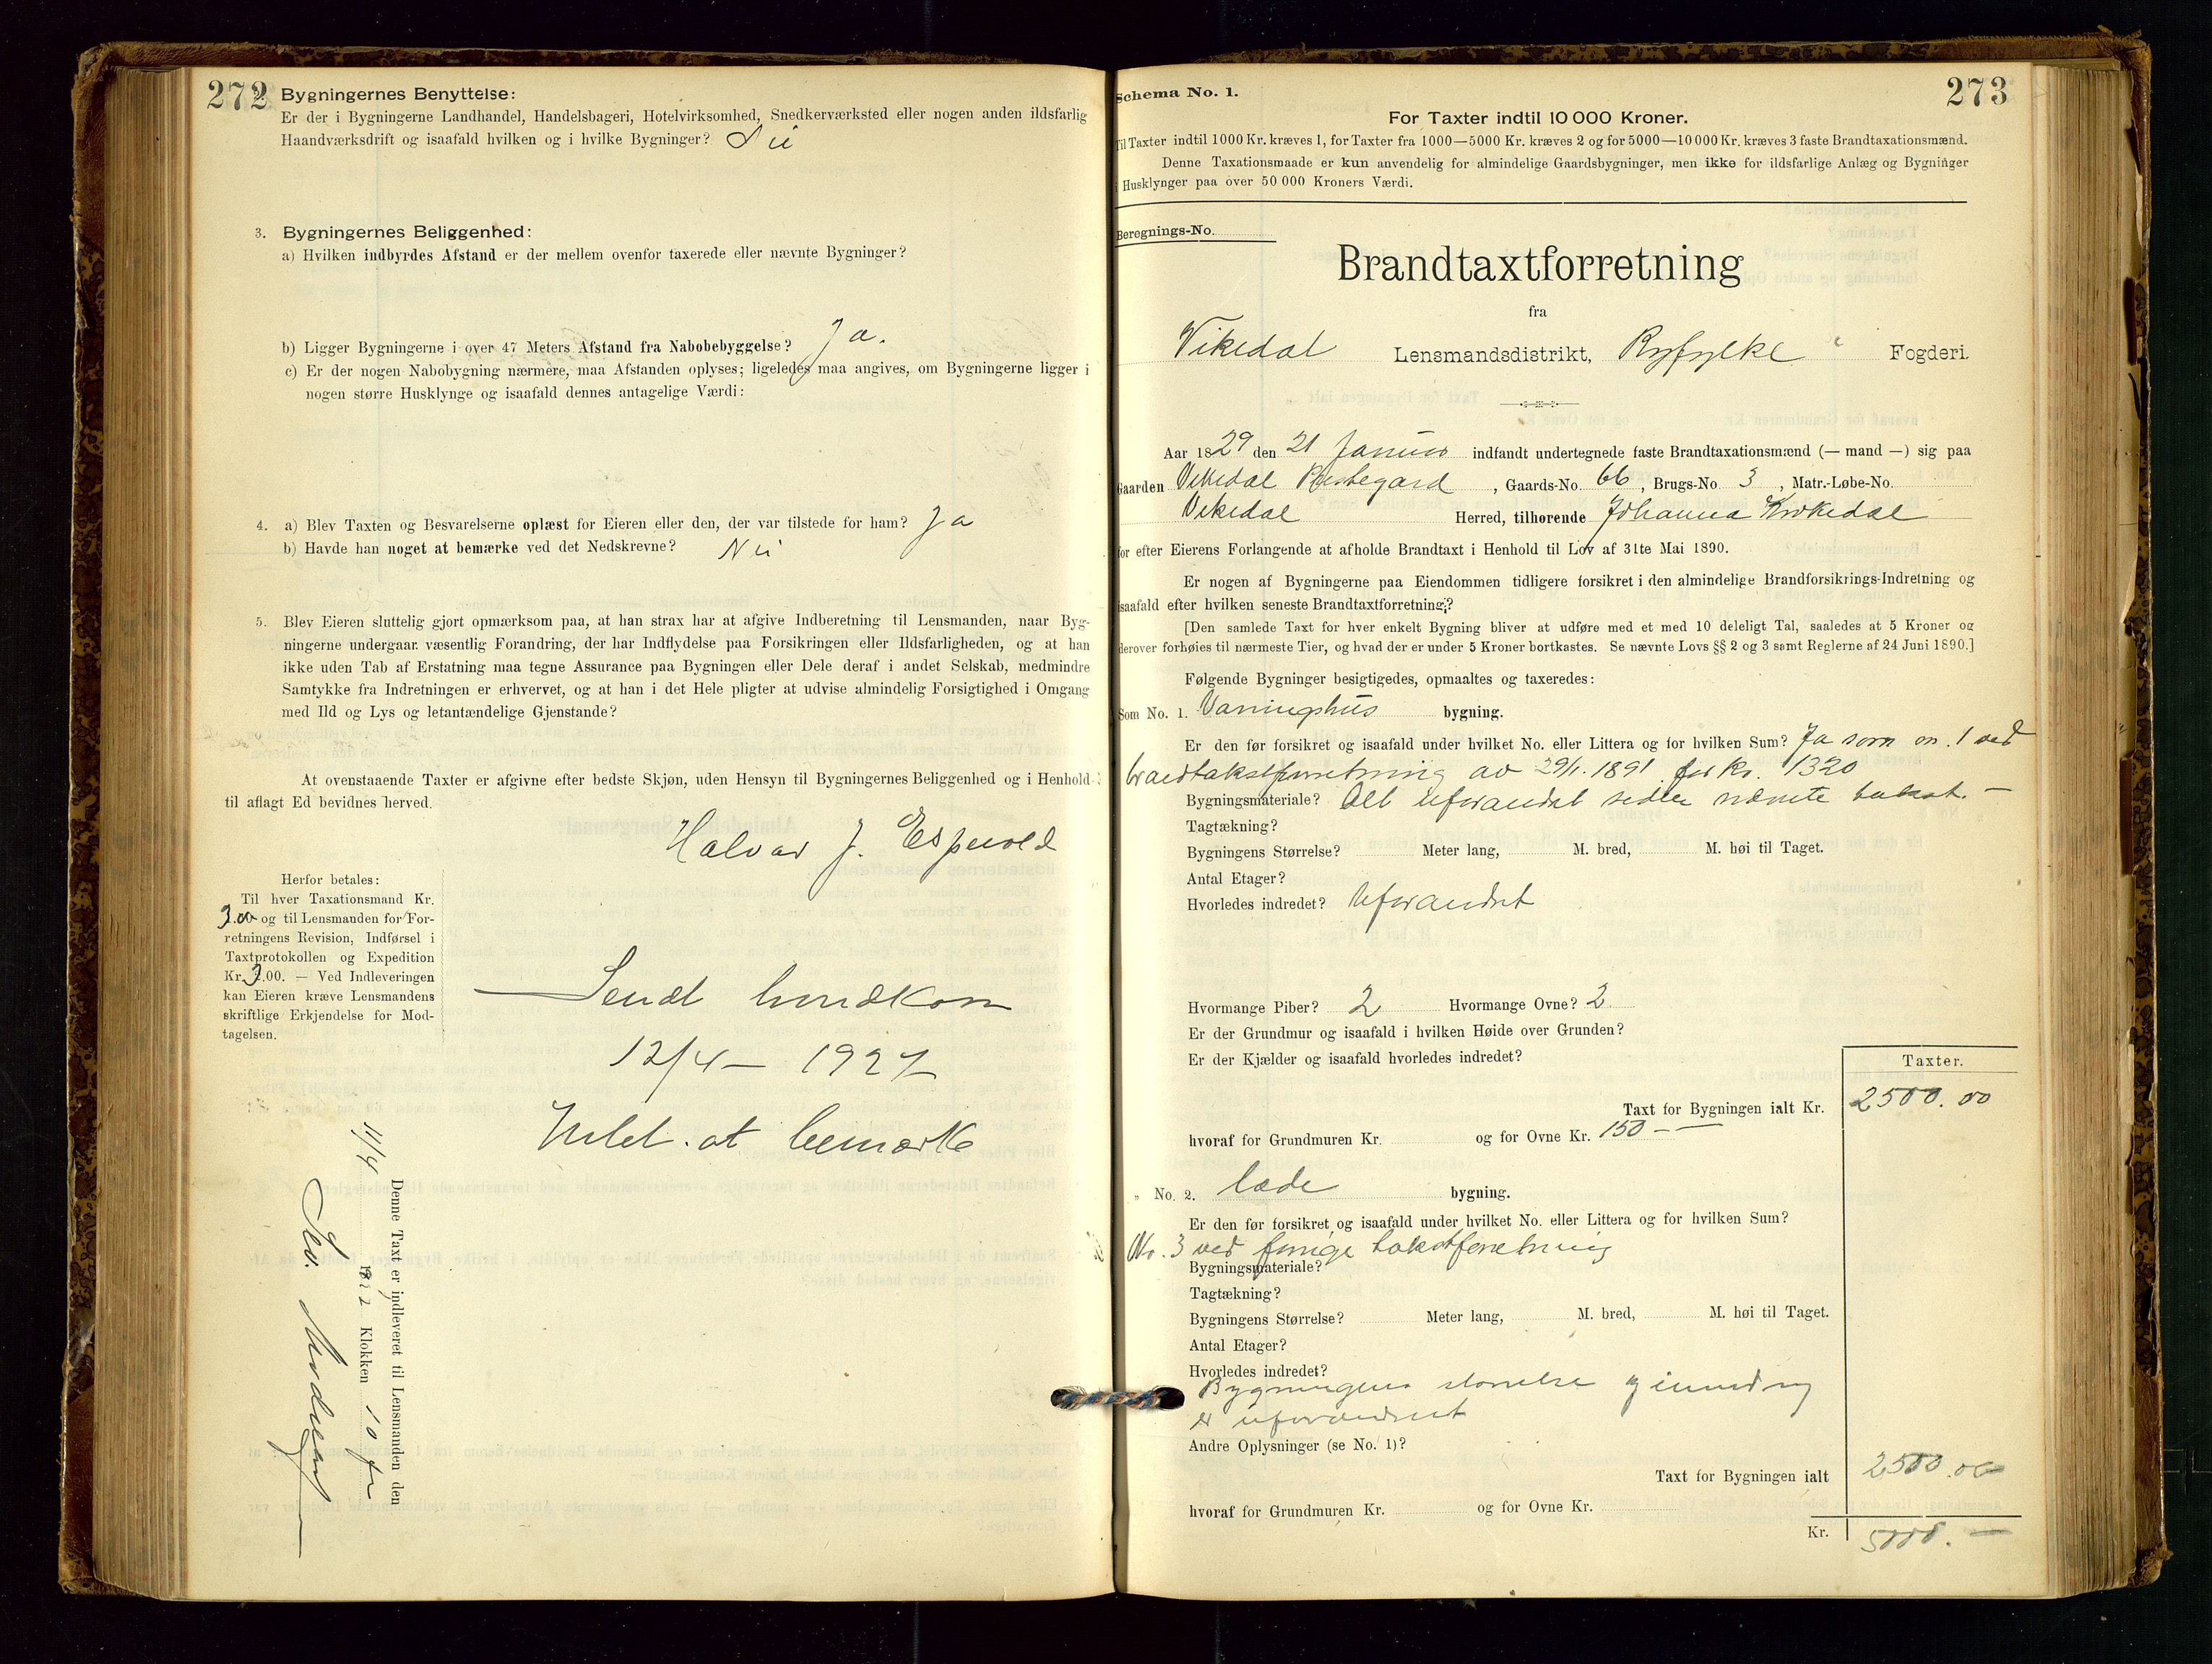 272 Bygningernes Benyttelse:
Er der i Bygningerne Landhandel, Handelsbageri, Hotelvirksomhed, Snedkerværksted eller nogen anden ildsfarlig
Haandværksdrift og isaafald hvilken og i hvilke Bygninger? Nei
3. Bygningernes Beliggenhed:
a) Hvilken indbyrdes Afstand er der mellem ovenfor taxerede eller nævnte Bygninger?
b) Ligger Bygningerne i over 47 Meters Afstand fra Nabobebyggelse? Ja.
c) Er der nogen Nabobygning nærmere, maa Afstanden oplyses; ligeledes maa angives, om Bygningerne ligger i
nogen større Husklynge og isaafald dennes antagelige Værdi:
4. a) Blev Taxten og Besvarelserne oplæst for Eieren eller den, der var tilstede for ham? Ja
b) Havde han noget at bemærke ved det Nedskrevne? Nei
5. Blev Eieren sluttelig gjort opmærksom paa, at han strax har at afgive Indberetning til Lensmanden, naar Byg-
ningerne undergaar væsentlig Forandring, der har Indflydelse paa Forsikringen eller Ildsfarligheden, og at han
ikke uden Tab af Erstatning maa tegne Assurance paa Bygningen eller Dele deraf i andet Selskab, medmindre
Samtykke fra Indretningen er erhvervet, og at han i det Hele pligter at udvise almindelig Forsigtighed i Omgang
med Ild og Lys og letantændelige Gjenstande?
At ovenstaaende Taxter er afgivne efter bedste Skjøn, uden Hensyn til Bygningernes Beliggenhed og i Henhold
til aflagt Ed bevidnes herved.
Halvar J. Espevold
Herfor betales:
Til hver Taxationsmand Kr.
3.00 og til Lensmanden for For-
retningens Revision, Indførsel i
Taxtprotokollen og Expedition
Kr. 3.00. — Ved Indleveringen
kan Eieren kræve Lensmandens
skriftlige Erkjendelse for Mod-
tagelsen.
Sendt brndkom
12/4 – 1927
Intet at bemærke
Denne Taxt er indleveret til Lensmanden den
11/4 Klokken 10 fm
273
Schema No. 1.
For Taxter indtil 10 000 Kroner.
Til Taxter indtil 1000 Kr. kræves 1, for Taxter fra 1000—5000 Kr. kræves 2 og for 5000—10 000 Kr. kræves 3 faste Brandtaxationsmænd.
Denne Taxationsmaade er kun anvendelig for almindelige Gaardsbygninger, men ikke for ildsfarlige Anlæg og Bygninger
i Husklynger paa over 50 000 Kroners Værdi.
Beregnings-No.
Brandtaxtforretning
fra
Vikedal Lensmandsdistrikt, Ryfylke Fogderi.
Aar 1829 den 21 Januar indfandt undertegnede faste Brandtaxationsmænd (— mand —) sig paa
Gaarden Vikedal Prestegard, Gaards-No. 66, Brugs-No. 3, Matr.-Løbe-No.
Vikedal Herred, tilhørende Johanna Krokedal
for efter Eierens Forlangende at afholde Brandtaxt i Henhold til Lov af 31te Mai 1890.
Er nogen af Bygningerne paa Eiendommen tidligere forsikret i den almindelige Brandforsikrings-Indretning og
isaafald efter hvilken seneste Brandtaxtforretning?
[Den samlede Taxt for hver enkelt Bygning bliver at udføre med et med 10 deleligt Tal, saaledes at 5 Kroner og
derover forhøies til nærmeste Tier, og hvad der er under 5 Kroner bortkastes. Se nævnte Lovs §§ 2 og 3 samt Reglerne af 24 Juni 1890.]
Følgende Bygninger besigtigedes, opmaaltes og taxeredes:
Som No. 1. Vaaningshus bygning.
Er den før forsikret og isaafald under hvilket No. eller Littera og for hvilken Sum? Ja som nr. 1 ved
brandtakstforretning av 29/1. 1891 for kr. 1320
Bygningsmateriale? Alt uforandret siden nævnte takst. —
Tagtækning?
Bygningens Størrelse? Meter lang, M. bred, M. høi til Taget.
Antal Etager?
Hvorledes indredet? Uforandret
Hvormange Piber? 2 Hvormange Ovne? 2
Er der Grundmur og isaafald i hvilken Høide over Grunden?
Er der Kjælder og isaafald hvorledes indredet?
Taxter.
Taxt for Bygningen ialt Kr. 2500.00
hvoraf for Grundmuren Kr. og for Ovne Kr. 150 —
„ No. 2. Lade bygning.
Er den før forsikret og isaafald under hvilket No. eller Littera og for hvilken Sum?
No. 3 ved forrige takstforretning
Bygningsmateriale?
Tagtækning?
Bygningens Størrelse? Meter lang, M. bred, M. høi til Taget.
Antal Etager?
Hvorledes indredet?
Bygningens størrelse og innredning
er uforandret
Andre Oplysninger (se No. 1)?
Taxt for Bygningen ialt 2500.00
hvoraf for Grundmuren Kr. og for Ovne Kr.
Kr. 5000. —